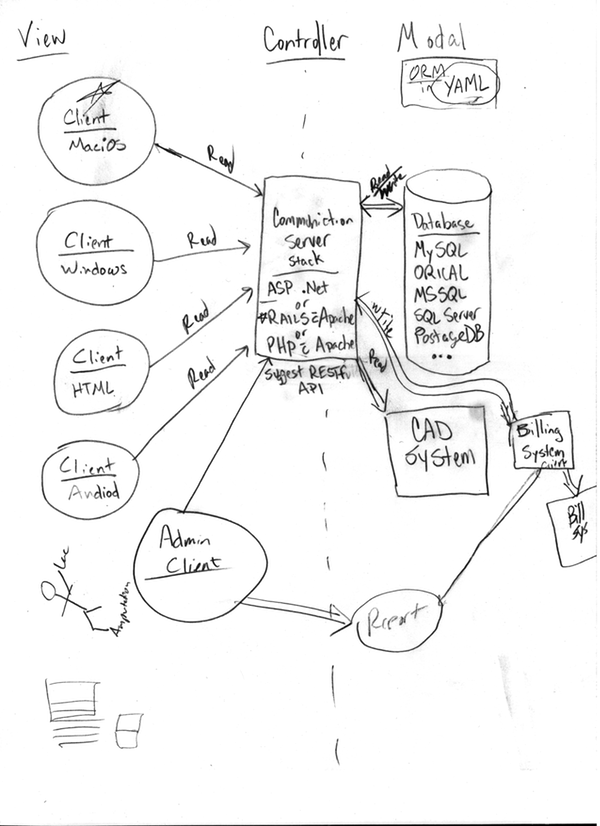 View
Controller
Modal
ORM
in
YAML
Client
MaciOS
Read
Client
Windows
Read
Client
HTML
Read
Client
Andiod
Read
Communiction
Server
Stack
ASP .Net
or
RAILS Apache
or
PHP Apache
Suggest RESTful
API
Read
Write
Database
MySQL
ORICAL
MSSQL
SQL Server
PostageDB
...
Write
Read
CAD
System
Billing
System
Client
Bill
Sys
Admin
Client
Report
Amputation